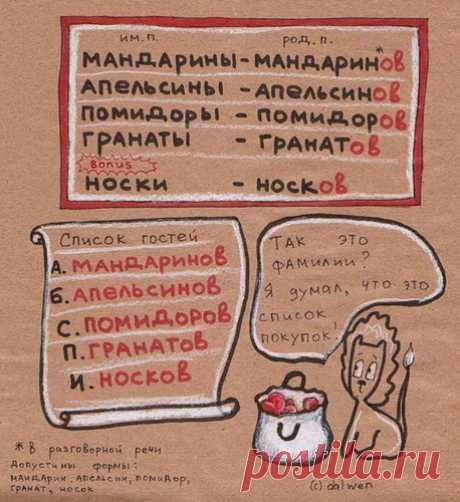 им.п. род.п.
мандарины - мандаринов*
апельсины - апельсинов
помидоры - помидоров
гранаты - гранатов
Bonus
носки - носков
Список гостей
А. Мандаринов
Б. Апельсинов
С. Помидоров
П. Гранатов
И. Носков
Так это
фамилии?
Я думал, что это
список
покупок!
* в разговорной речи
допустимы формы:
мандарин, апельсин, помидор,
гранат, носок
(c) dalwen
postila.ru